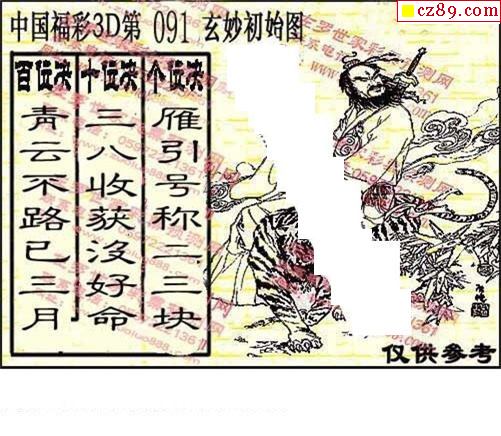 cz89.com
中国福彩3D第 091 玄妙初始图
百位决 十位决 个位决
青云不路已三月
三八收获没好命
雁引号称二三块
仅供参考